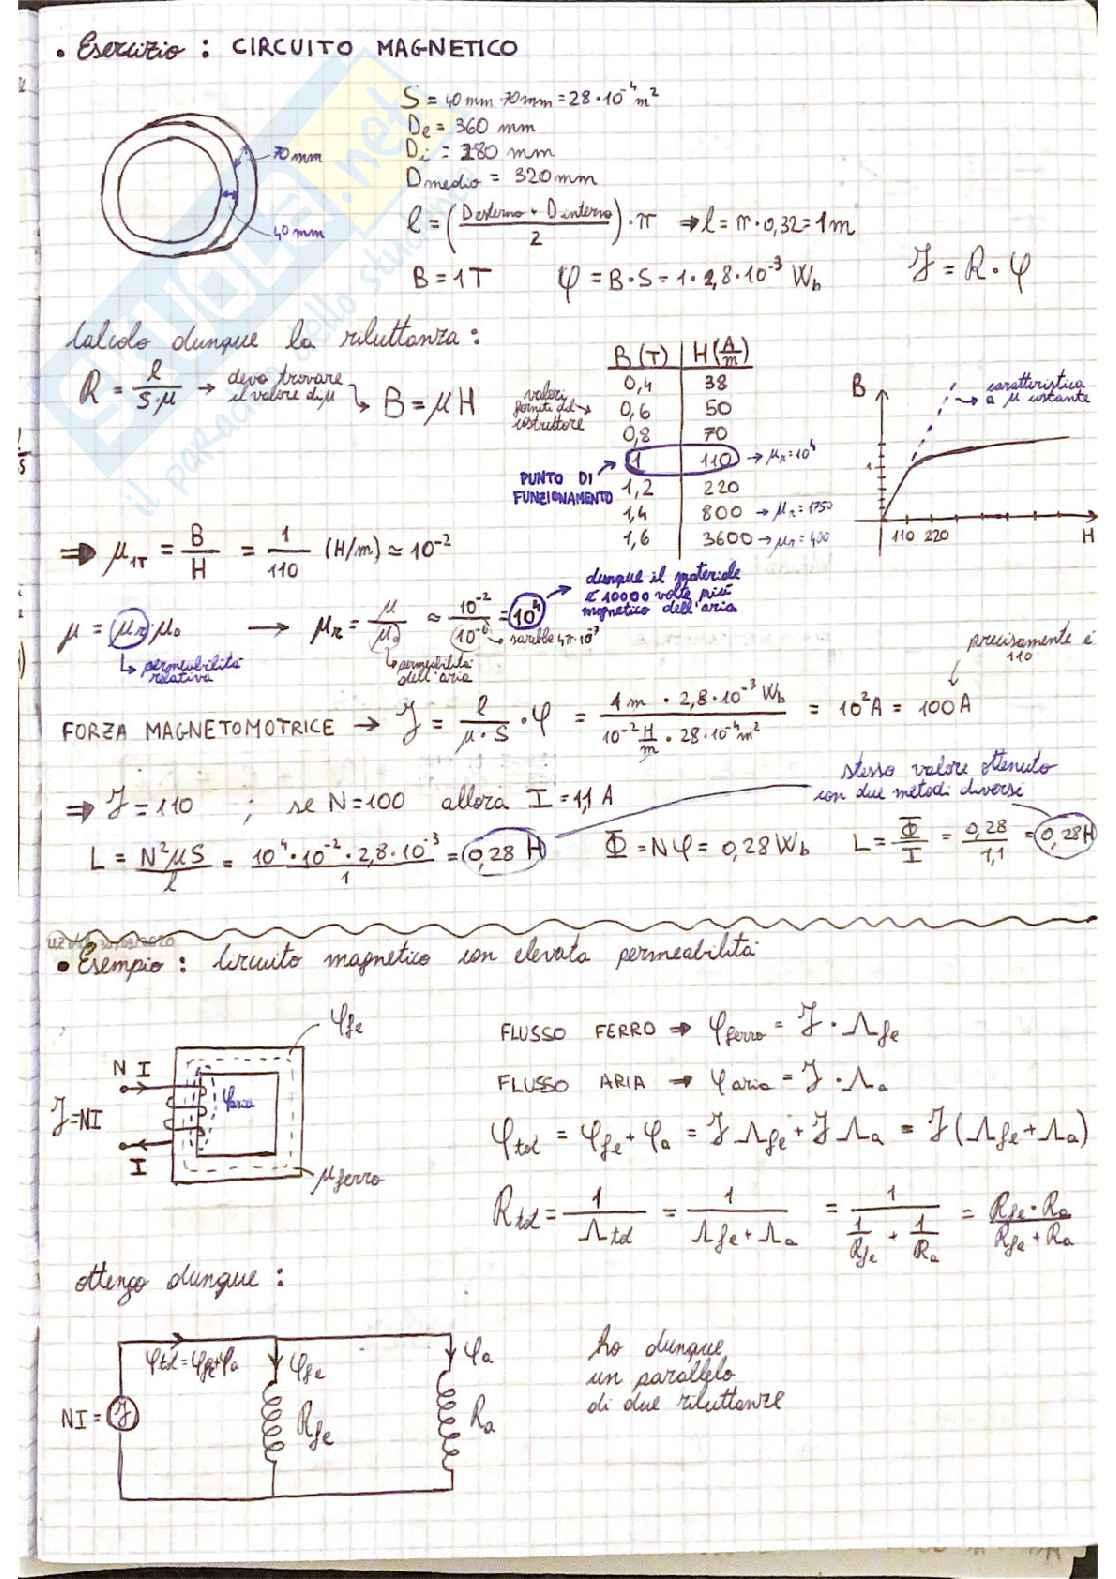 • Esercizio : CIRCUITO MAGNETICO
S = 40 mm · 70 mm = 28 · 10⁻⁴ m²
De = 360 mm
Di = 280 mm
Dmedio = 320 mm
70 mm
40 mm
l = (Desterno + Dinterno / 2) · π ⇒ l = π · 0,32 = 1 m
B = 1T φ = B · S = 1 · 2,8 · 10⁻³ Wb
F = R · φ
Calcolo dunque la riluttanza :
R = l / S·μ → devo trovare il valore di μ → B = μ H
valori forniti dal costruttore
B (T) | H (A/m)
0,4 | 38
0,6 | 50
0,8 | 70
1 | 110 → μr = 10⁴
1,2 | 220
1,4 | 800 → μr = 1750
1,6 | 3600 → μr = 400
PUNTO DI FUNZIONAMENTO
B
caratteristica a μ costante
1
110 220
H
⇒ μ1T = B / H = 1 / 110 (H/m) ≃ 10⁻²
dunque il materiale è 10000 volte più magnetico dell'aria
μ = μr · μ0 → μr = μ / μ0 ≈ 10⁻² / 10⁻⁶ = 10⁴
sarebbe 4π · 10⁻³
permeabilità relativa
permeabilità dell'aria
precisamente è 110
FORZA MAGNETOMOTRICE → F = l / μ · S · φ = 1 m · 2,8 · 10⁻³ Wb / 10⁻² H/m · 28 · 10⁻⁴ m² = 10² A = 100 A
stesso valore ottenuto con due metodi diversi
⇒ F = 110 ; se N = 100 allora I = 1,1 A
L = N² μ S / l = 10⁴ · 10⁻² · 2,8 · 10⁻³ / 1 = 0,28 H Φ = N φ = 0,28 Wb L = Φ / I = 0,28 / 1,1 = 0,28 H
• Esempio : Circuito magnetico con elevata permeabilità
φfe
N I
φaria
F = NI
I
μ ferro
FLUSSO FERRO ⇒ φferro = F · Λfe
FLUSSO ARIA ⇒ φaria = F · Λa
φtot = φfe + φa = F Λfe + F Λa = F (Λfe + Λa)
Rtot = 1 / Λtot = 1 / Λfe + Λa = 1 / 1/Rfe + 1/Ra = Rfe · Ra / Rfe + Ra
ottengo dunque :
φtot = φfe + φa
φfe
φa
NI = F
Rfe
Ra
ho dunque
un parallelo
di due riluttanze